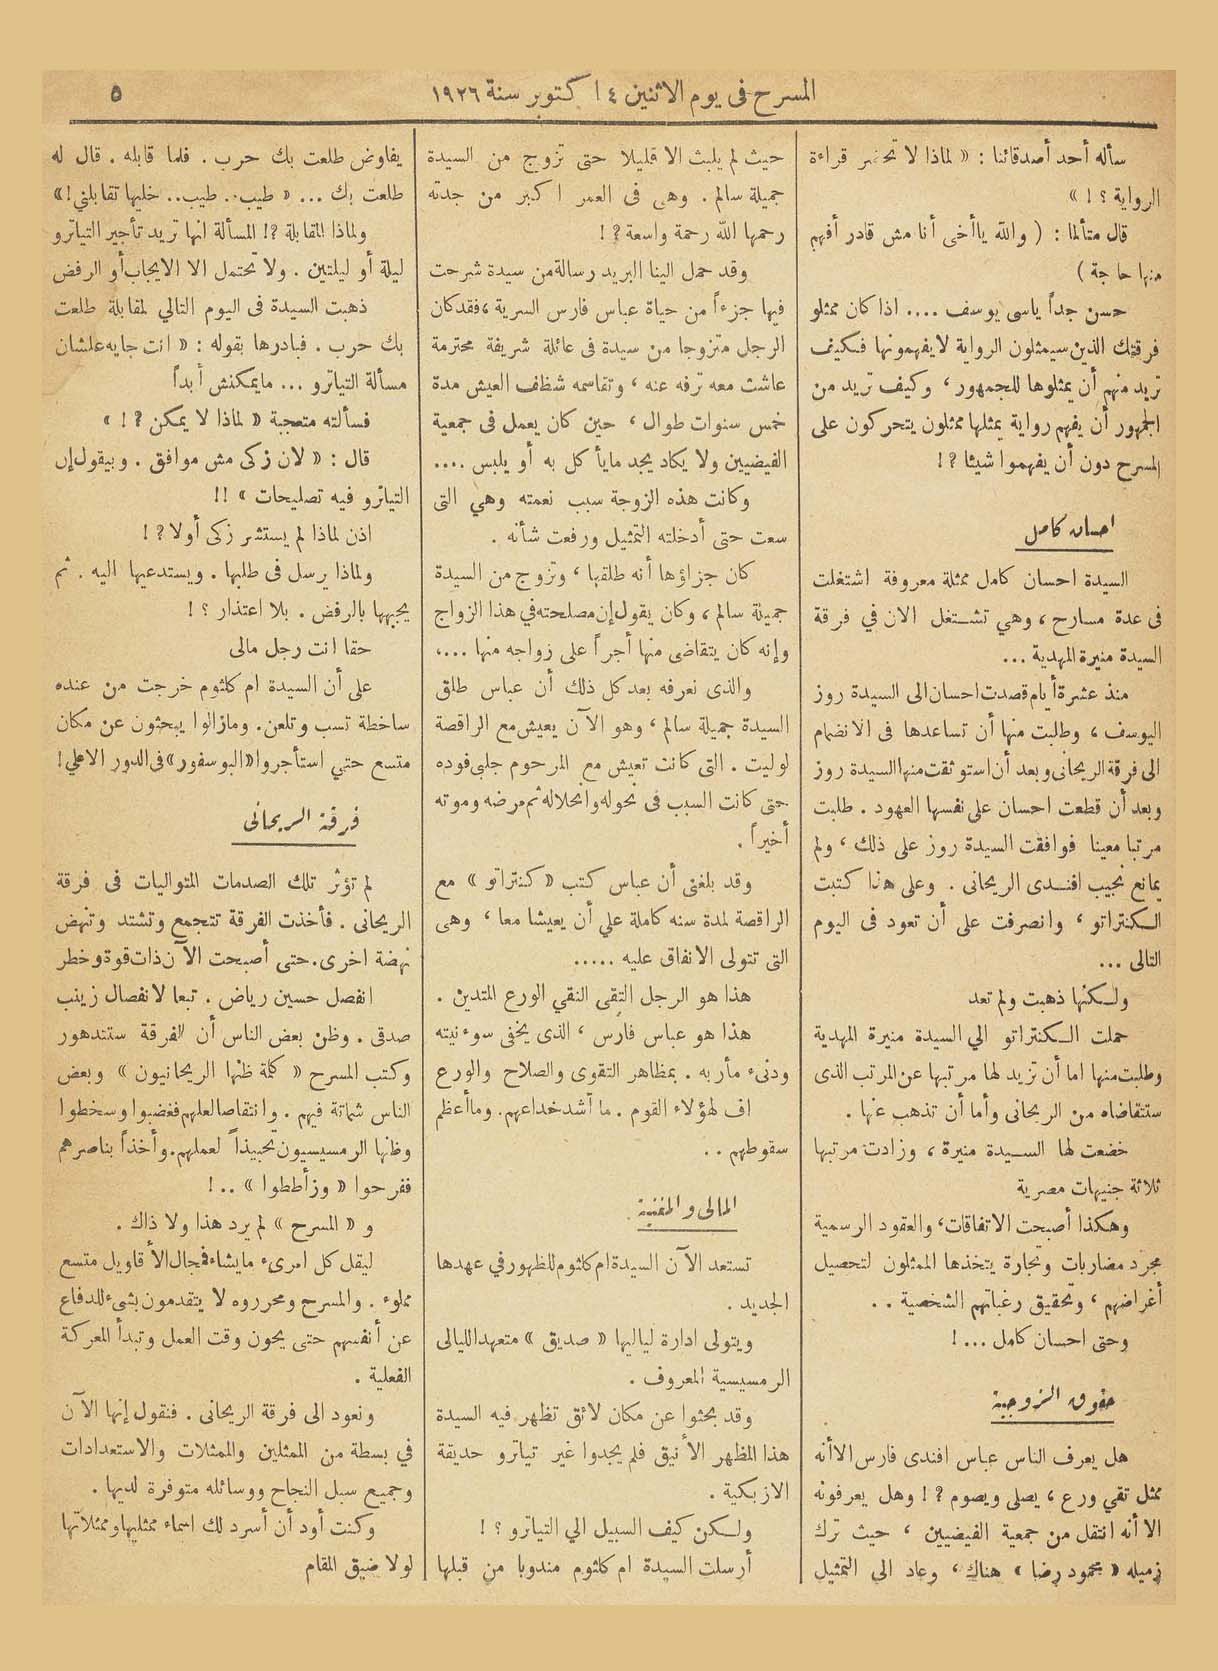 المسرح فى يوم الاثنين ٤ اكتوبر سنة ١٩٢٦
٥
سأله أحد أصدقائنا : « لماذا لا تحضر قراءة
الرواية ؟ ! »
قال متألما : ( والله ياأخى أنا مش قادر أفهم
منها حاجة )
حسن جداً ياسى يوسف .... اذا كان ممثلو
فرقتك الذين سيمثلون الرواية لا يفهمونها فكيف
تريد منهم أن يمثلوها للجمهور ، وكيف تريد من
الجمهور أن يفهم رواية يمثلها ممثلون يتحركون على
المسرح دون أن يفهموا شيئا ؟ !
احسان كامل
السيدة احسان كامل ممثلة معروفة اشتغلت
فى عدة مسارح ، وهي تشتغل الان في فرقة
السيدة منيرة المهدية ...
منذ عشرة أيام قصدت احسان الى السيدة روز
اليوسف ، وطلبت منها أن تساعدها فى الانضمام
الى فرقة الريحانى وبعد أن استوثقت منها السيدة روز
وبعد أن قطعت احسان على نفسها العهود . طلبت
مرتبا معينا فوافقت السيدة روز على ذلك ، ولم
يمانع نجيب افندى الريحانى . وعلى هذا كتبت
الكنتراتو ، وانصرفت على أن تعود فى اليوم
التالى ...
ولكنها ذهبت ولم تعد
حملت الكنتراتو الي السيدة منيرة المهدية
وطلبت منها اما أن تزيد لها مرتبها عن المرتب الذى
ستتقاضاه من الريحانى وأما أن تذهب عنها .
خضعت لها السيدة منيرة ، وزادت مرتبها
ثلاثة جنيهات مصرية
وهكذا أصبحت الاتفاقات ، والعقود الرسمية
مجرد مضاربات وتجارة يتخذها الممثلون لتحصيل
أغراضهم ، وتحقيق رغباتهم الشخصية . .
وحتى احسان كامل ... !
حقوق الزوجية
هل يعرف الناس عباس افندى فارس الا أنه
ممثل تقي ورع ، يصلى ويصوم ؟ ! وهل يعرفونه
الا أنه انتقل من جمعية الفيضيين ، حيث ترك
زميله « محمود رضا » هناك ، وعاد الى التمثيل
حيث لم يلبث الا قليلا حتى تزوج من السيدة
جميلة سالم . وهى فى العمر اكبر من جدته
رحمها الله رحمة واسعة ? !
وقد حمل الينا البريد رسالة من سيدة شرحت
فيها جزءاً من حياة عباس فارس السرية ، فقد كان
الرجل متزوجا من سيدة فى عائلة شريفة محترمة
عاشت معه ترفه عنه ، وتقاسمه شظف العيش مدة
خمس سنوات طوال ، حين كان يعمل فى جمعية
الفيضيين ولا يكاد يجد ما يأكل به أو يلبس ....
وكانت هذه الزوجة سبب نعمته وهي التى
سعت حتى أدخلته التمثيل ورفعت شأنه .
كان جزاؤها أنه طلقها ، وتزوج من السيدة
جميلة سالم ، وكان يقول إن مصلحته في هذا الزواج
وإنه كان يتقاضى منها أجراً على زواجه منها ....
والذى نعرفه بعد كل ذلك أن عباس طلق
السيدة جميلة سالم ، وهو الآن يعيش مع الراقصة
لوليت . التى كانت تعيش مع المرحوم جلبى فوده
حتى كانت السبب فى نحوله وانحلاله ثم مرضه وموته
أخيراً .
وقد بلغنى أن عباس كتب « كنتراتو » مع
الراقصة لمدة سنه كاملة علي أن يعيشا معا ، وهى
التى تتولى الانفاق عليه .....
هذا هو الرجل التقى النقي الورع المتدين .
هذا هو عباس فارس ، الذى يخفى سوء نيته
ودنىء مأربه . بمظاهر التقوى والصلاح والورع
اف لهؤلاء القوم . ما أشد خداعهم . وما أعظم
سقوطهم . .
المالى والمغنية
تستعد الآن السيدة ام كلثوم للظهور في عهدها
الجديد .
ويتولى ادارة لياليها « صديق » متعهد الليالى
الرمسيسية المعروف .
وقد بحثوا عن مكان لائق تظهر فيه السيدة
هذا المظهر الأنيق فلم يجدوا غير تياترو حديقة
الازبكية .
ولكن كيف السبيل الي التياترو ؟ !
أرسلت السيدة ام كلثوم مندوبا من قبلها
يفاوض طلعت بك حرب . فلما قابله . قال له
طلعت بك ... « طيب . . طيب .. خليها تقابلني ! »
ولماذا المقابلة ?! المسألة انها تريد تأجير التياترو
ليلة أو ليلتين . ولا تحتمل الا الايجاب أو الرفض
ذهبت السيدة فى اليوم التالي لمقابلة طلعت
بك حرب . فبادرها بقوله : « انت جايه علشان
مسألة التياترو ... مايمكنش أبداً
فسألته متعجبة « لماذا لا يمكن ? ! »
قال : « لان زكى مش موافق . وبيقول إن
التياترو فيه تصليحات » !!
اذن لماذا لم يستشر زكى أولا ? !
ولماذا يرسل فى طلبها . ويستدعيها اليه . ثم
يجبهها بالرفض . بلا اعتذار ؟ !
حقا انت رجل مالى
على أن السيدة ام كلثوم خرجت من عنده
ساخطة تسب وتلعن . ومازالوا يبحثون عن مكان
متسع حتي استأجروا « البوسفور » فى الدور الاعلي !
فرقة الريحانى
لم تؤثر تلك الصدمات المتواليات فى فرقة
الريحانى . فأخذت الفرقة تتجمع وتشتد وتنهض
نهضة اخرى . حتى أصبحت الآن ذات قوة وخطر
انفصل حسين رياض . تبعا لانفصال زينب
صدقى . وظن بعض الناس أن الفرقة ستتدهور
وكتب المسرح « كلمة ظنها الريحانيون » وبعض
الناس شماتة فيهم . وانتقاصا لعلهم فغضبوا وسخطوا
وظنها الرمسيسيون تحبيذاً لعملهم . وأخذاً بناصرهم
ففرحوا « وزأططوا » .. !
و « المسرح » لم يرد هذا ولا ذاك .
ليقل كل امرىء مايشاء فمجال الأقاويل متسع
مملوء . والمسرح ومحرروه لا يتقدمون بشىء للدفاع
عن أنفسهم حتى يحون وقت العمل وتبدأ المعركة
الفعلية .
ونعود الى فرقة الريحانى . فنقول إنها الآن
في بسطة من الممثلين والممثلات والاستعدادات
وجميع سبل النجاح ووسائله متوفرة لديها .
وكنت أود أن أسرد لك اسماء ممثليها وممثلاتها
لولا ضيق المقام